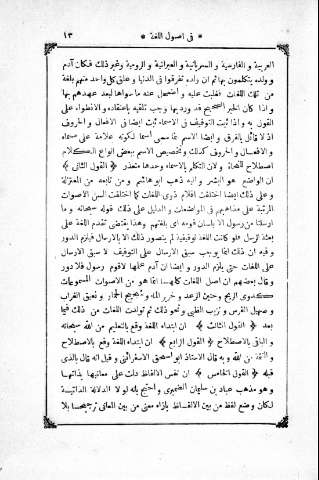 * فى اصول اللغة * ١٣
العربية و الفارسية و السريانية و العبرانية و الرومية وغير ذلك فكان آدم
و ولده يتكلمون بهاثم ان ولده تفرقوا فى الدنيا وعلق كل واحد منهم بلغة
من تلك اللغات فغلبت عليه و اضمحل عنه ماسواها لبعد عهدهم بها
و اذا كان الخبر الصحيح قد ورد بهذا وجب تلقيه باعتقاده والانطواء على
القول به و اذا ثبت التوقيف فى الاسماء ثبت ايضا فى الافعال و الحروف
اذلا قائل بالفرق و ايضا الاسم انما سمى اسما لكونه علامة على مسماه
و الافعال و الحروف كذلك و تخصيص الاسم ببعض انواع الكلام
اصطلاح للنحاة و لان التكلم بالاسماء وحدها متعذر ﴿ القول الثانى ﴾
ان الواضع هو البشر و اليه ذهب ابو هاشم و من تابعه من المعتزلة
و على ذلك ايضا اختلفت اقلام ذوى اللغات كما اختلفت السن الاصوات
المرتبة على مذاهبهم فى المواضعات و الدليل على ذلك قوله سبحانه و ما
ارسلنا من رسول الا بلسان قومه اى بلغتهم وهذا يقتضى تقدم اللغة على
بعثة الرسل فلو كانت اللغة توقيفية لم يتصور ذلك الا بالارسال فيلزم الدور
و فيه ان ذلك انما يوجب سبق الارسال على التوقيف لا سبق الارسال
على اللغات حتى يلزم الدور و ايضا ان آدم علمها لاقوم رسول فلا دور
و قال بعضهم ان اصل اللغات كلها انما هو من الاصوات المسموعات
كدوى الريح وحنين الرعد و خرير الماء و شحيج الحمار و نعيق الغراب
و صهيل الفرس و نزيب الظبى و نحو ذلك ثم تولدت اللغات من ذلك فيما
بعد ﴿ القول الثالث ﴾ ان ابتداء اللغة وقع بالتعليم من الله سبحانه
و الباقى بالاصطلاح ﴿ القول الرابع ﴾ ان ابتداء اللغة وقع بالاصطلاح
و التتمة من الله و به قال الاستاذ ابو اسحق الاسفرائنى و قيل انه قال بالذى
قبله ﴿ القول الخامس ﴾ ان نفس الالفاظ دلت على معانيها بذاتها
و هو مذهب عباد بن سليمان الصيمرى و احتج بانه لولا الدلالة الذاتية
لكان وضع لفظ من بين الالفاظ بازاء معنى من بين المعانى ترجيحا بلا